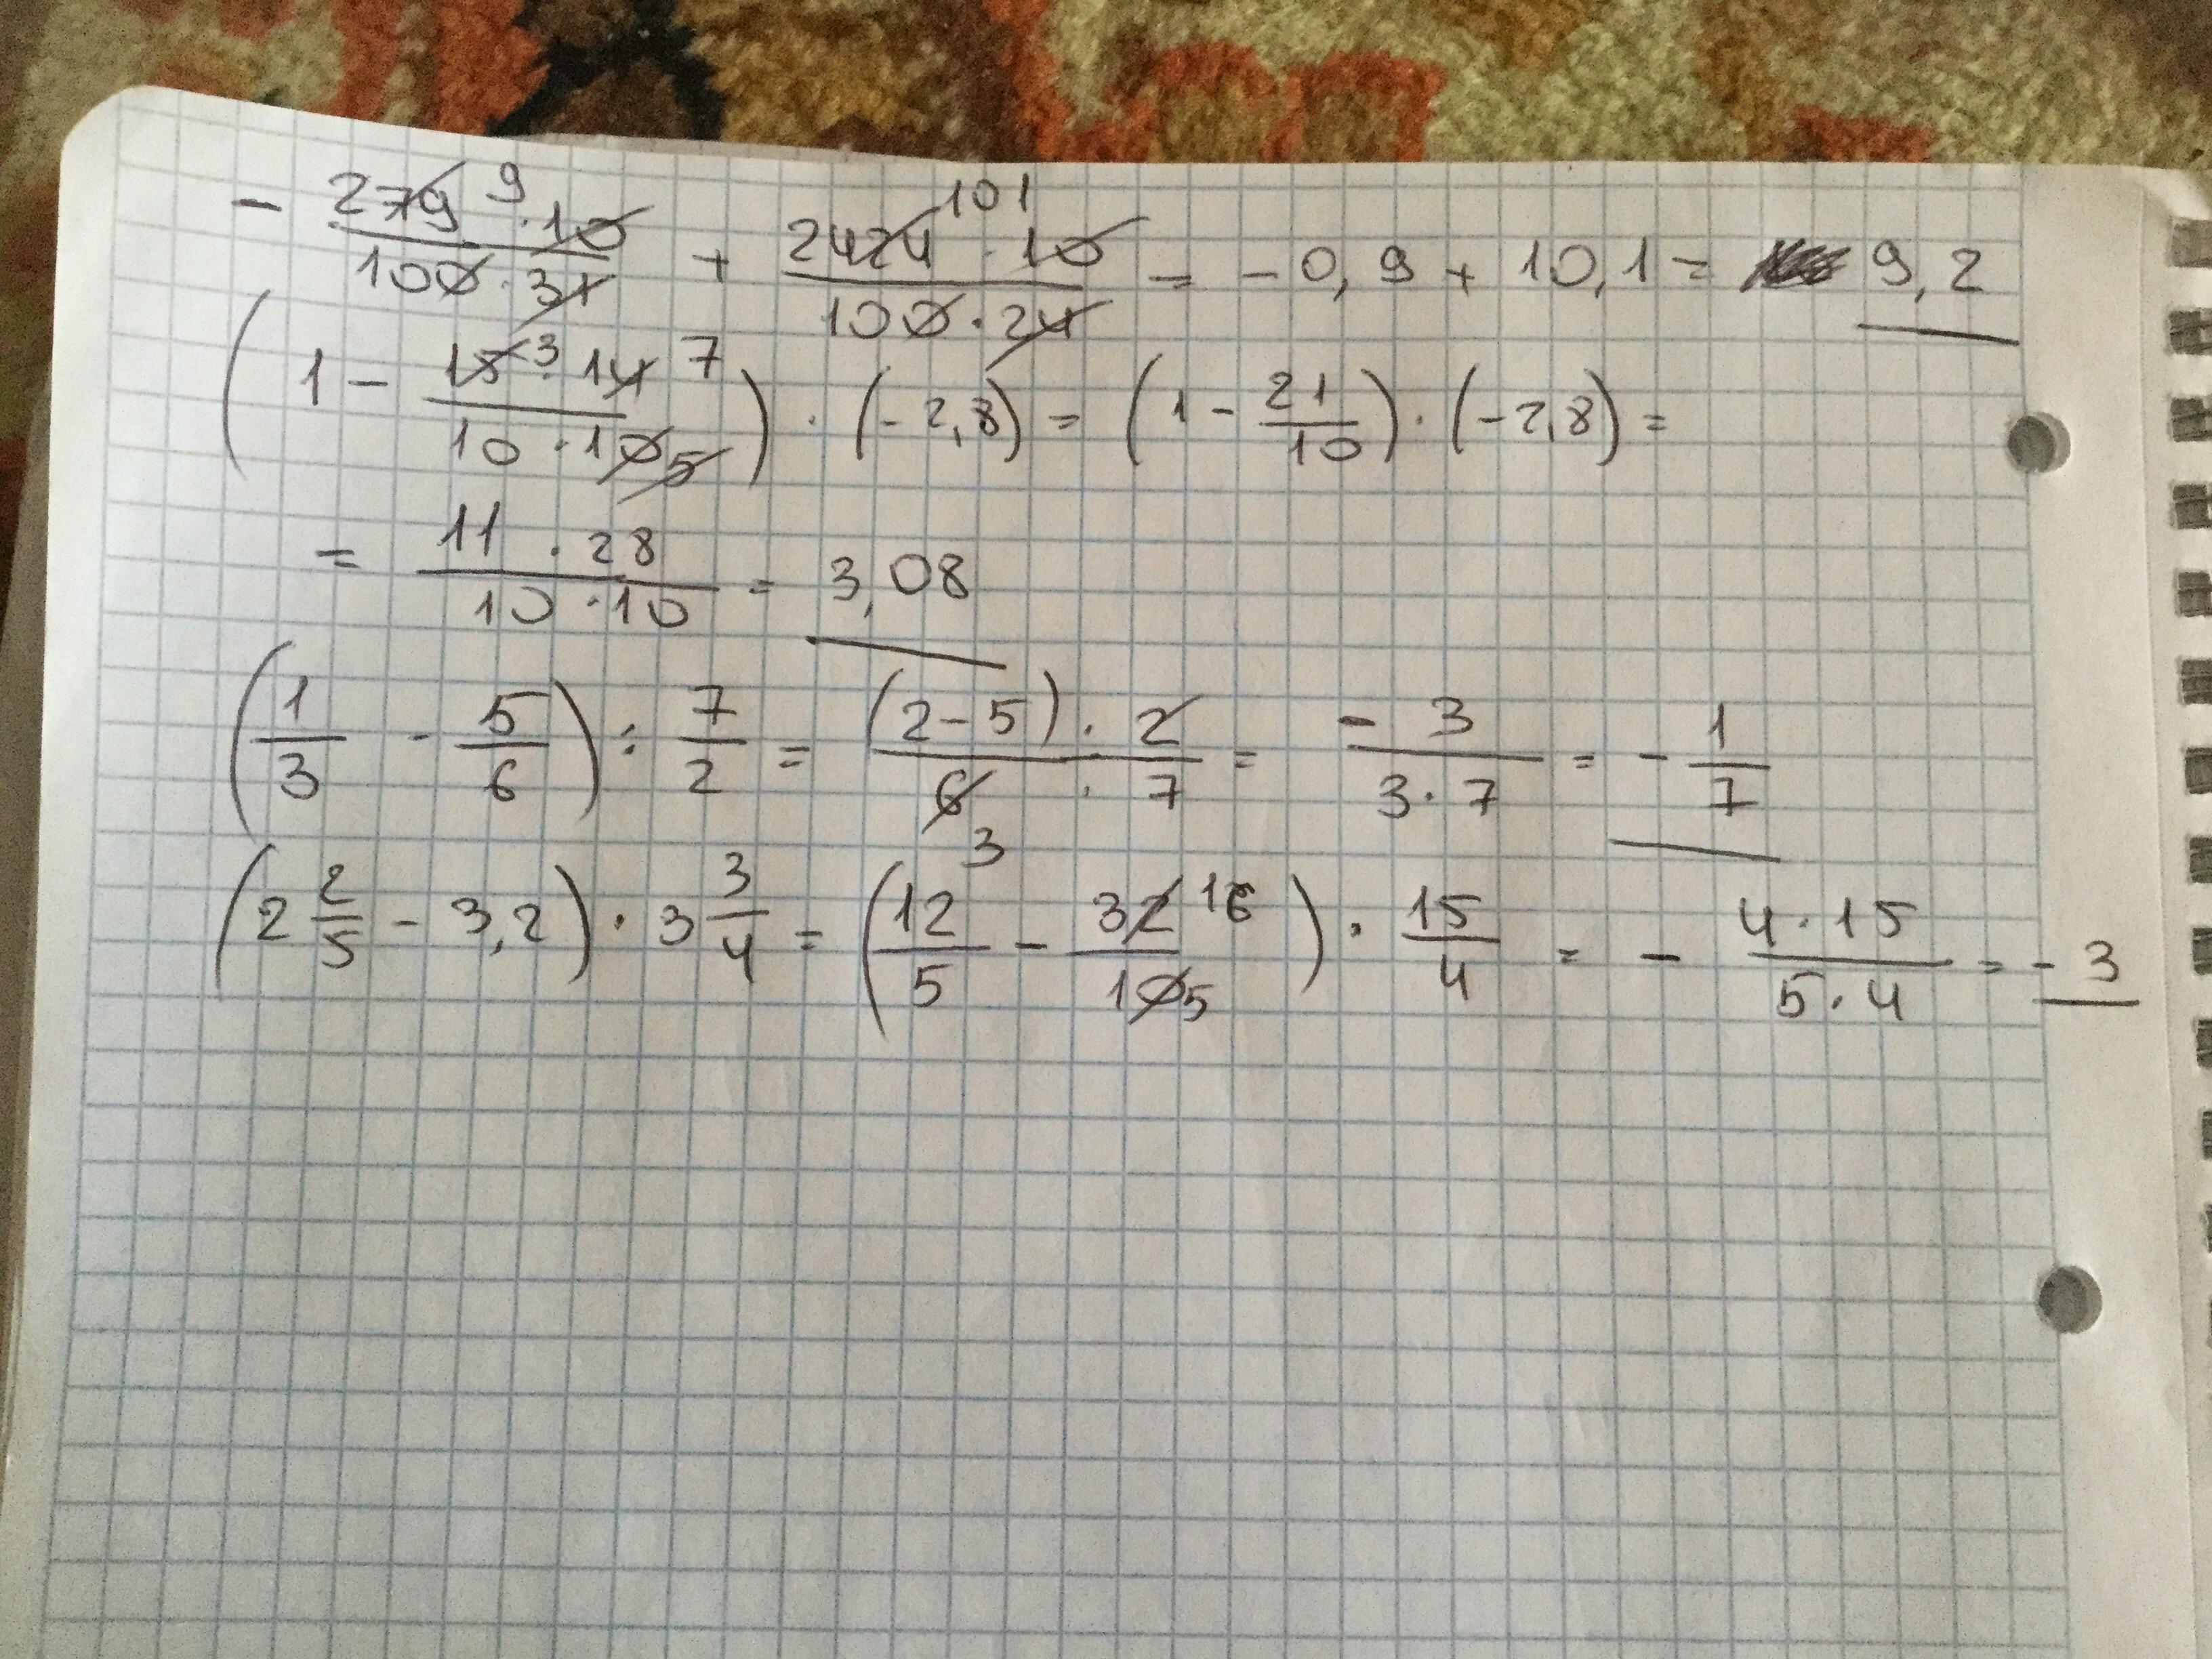 - 279 9 · 10 / 100 · 31 + 2424 101 · 10 / 100 · 24 = - 0,9 + 10,1 = 9,2
( 1 - 15 3 · 14 7 / 10 · 10 5 ) · (- 2,8) = ( 1 - 21/10 ) · (- 2,8) =
= 11 · 28 / 10 · 10 = 3,08
( 1/3 - 5/6 ) : 7/2 = (2 - 5) · 2 / 6 3 · 7 = - 3 / 3 · 7 = - 1/7
( 2 2/5 - 3,2 ) · 3 3/4 = ( 12/5 - 32 16 / 10 5 ) · 15/4 = - 4 · 15 / 5 · 4 = - 3